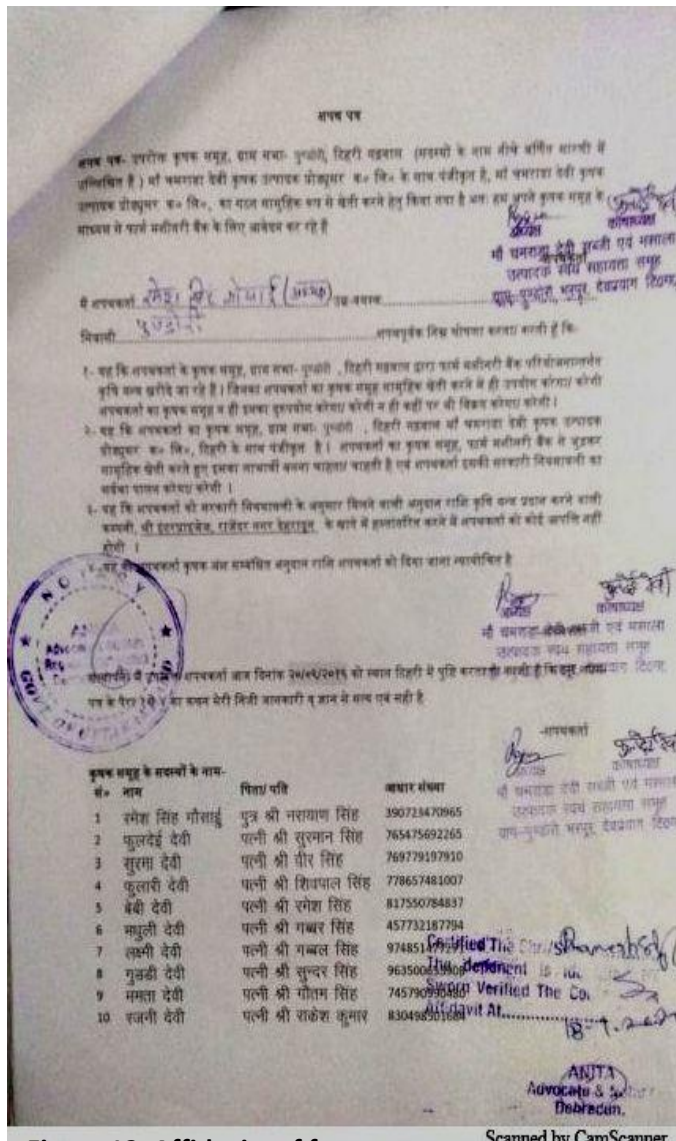 शपथ पत्र
शपथ पत्र- उपरोक्त कृषक समूह, ग्राम सभा- पुण्डोरी, टिहरी गढ़वाल (सदस्यों के नाम नीचे वर्णित सारणी में
उल्लिखित है ) माँ चमराडा देवी कृषक उत्पादक प्रोड्यूसर क० लि० के साथ पंजीकृत है, माँ चमराडा देवी कृषक
उत्पादक प्रोड्यूसर क० लि०, का गठन सामुहिक रूप से खेती करने हेतु किया गया है अतः हम अपने कृषक समूह के
माध्यम से फार्म मशीनरी बैंक के लिए आवेदन कर रहे है
अध्यक्ष कोषाध्यक्ष
माँ चमराडा देवी सब्जी एवं मसाला
उत्पादक स्वयं सहायता समूह
ग्राम-पुण्डोरी भरपूर, देवप्रयाग टि०ग०
मै शपथकर्ता रमेश सिंह (अध्यक्ष) उम्र-वयस्क
निवासी पुण्डोरी शपथपूर्वक निम्न घोषणा करता/ करती हूँ कि-
१- यह कि शपथकर्ता के कृषक समूह, ग्राम सभा- पुण्डोरी , टिहरी गढ़वाल द्वारा फार्म मशीनरी बैंक परियोजनान्तर्गत
कृषि यन्त्र खरीदे जा रहे है | जिनका शपथकर्ता का कृषक समूह सामुहिक खेती करने में ही उपयोग करेगा/ करेगी
शपथकर्ता का कृषक समूह न ही इनका दुरुपयोग करेगा/ करेगी न ही कहीं पर भी विक्रय करेगा/ करेगी |
२- यह कि शपथकर्ता का कृषक समूह, ग्राम सभा- पुण्डोरी , टिहरी गढ़वाल माँ चमराडा देवी कृषक उत्पादक
प्रोड्यूसर क० लि०, टिहरी के साथ पंजीकृत है | शपथकर्ता का कृषक समूह, फार्म मशीनरी बैंक से जुड़कर
सामुहिक खेती करते हुए इसका लाभार्थी बनना चाहता/ चाहती है एवं शपथकर्ता इसकी सरकारी नियमावली का
सर्वथा पालन करेगा/ करेगी |
३- यह कि शपथकर्ता को सरकारी नियमावली के अनुसार मिलने वाली अनुदान राशि कृषि यन्त्र प्रदान करने वाली
कम्पनी, श्री इंटरप्राइजेज, राजेंद्र नगर देहरादून के खाते में हस्तांतरित करने में शपथकर्ता को कोई आपत्ति नही
होगी |
यह की शपथकर्ता कृषक अंश सम्बंधित अनुदान राशि शपथकर्ता को दिया जाना न्यायोचित है
NOTARY
ANITA
GOVT. OF UTTARAKHAND
अध्यक्ष कोषाध्यक्ष
माँ चमराडा देवी सब्जी एवं मसाला
उत्पादक स्वयं सहायता समूह
शपथकर्ता आज दिनांक को स्थान टिहरी में पुष्टि करता/ करती है कि
पत्र के पैरा १ से ४ का कथन मेरी निजी जानकारी व ज्ञान में सत्य एवं सही है
-शपथकर्ता
माँ चमराडा देवी सब्जी एवं मसाला
उत्पादक स्वयं सहायता समूह
ग्राम-पुण्डोरी भरपूर, देवप्रयाग टि०ग०
कृषक समूह के सदस्यों के नाम-
सं० नाम पिता/ पति आधार संख्या
1 रमेश सिंह गौसाई पुत्र श्री नारायण सिंह 390723470965
2 फुलदेई देवी पत्नी श्री सुरमान सिंह 765475692265
3 सुरमा देवी पत्नी श्री वीर सिंह 769779197910
4 फुलारी देवी पत्नी श्री शिवपाल सिंह 778657481007
5 बेबी देवी पत्नी श्री रमेश सिंह 817550784837
6 मधुली देवी पत्नी श्री गब्बर सिंह 457732187794
7 लक्ष्मी देवी पत्नी श्री गब्बल सिंह
8 गुड्डी देवी पत्नी श्री सुन्दर सिंह
9 ममता देवी पत्नी श्री गौतम सिंह
10 रजनी देवी पत्नी श्री राकेश कुमार
Certified The
The deponent is
Sworn Verified The
Affidavit At
ANITA
Advocate & Notary
Dehradun.
Scanned by CamScanner